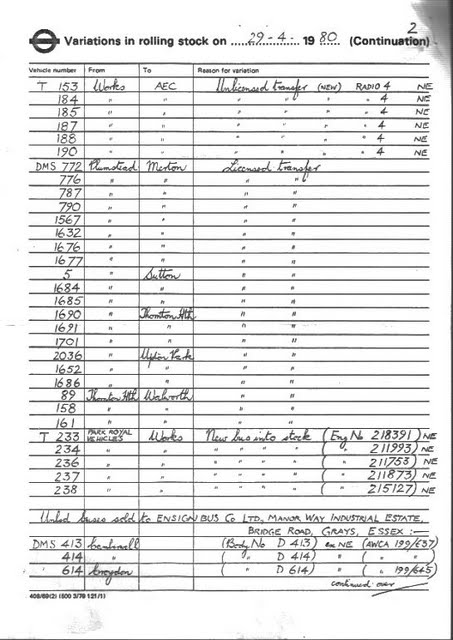 2
Variations in rolling stock on 29-4- 1980 (Continuation)
Vehicle number From To Reason for variation
T 153 Works AEC Unlicensed transfer (NEW) RADIO 4 NE
184 " " " " " " 4 NE
185 " " " " " " 4 NE
187 " " " " " " 4 NE
188 " " " " " " 4 NE
190 " " " " " " 4 NE
DMS 772 Plumstead Merton Licensed transfer
776 " " " "
787 " " " "
790 " " " "
1567 " " " "
1632 " " " "
1676 " " " "
1677 " " " "
5 " Sutton " "
1684 " " " "
1685 " " " "
1690 " Thornton Hth " "
1691 " " " "
1701 " " " "
2036 " Upton Park " "
1652 " " " "
1686 " " " "
89 Thornton Hth Walworth " "
158 " " " "
161 " " " "
T 233 PARK ROYAL VEHICLES Works New bus into stock (Eng No 218391) NE
234 " " " " " " ( " 211993) NE
236 " " " " " " ( " 211753) NE
237 " " " " " " ( " 211873) NE
238 " " " " " " ( " 215127) NE
Unlcd buses sold to ENSIGN BUS Co LTD, MANOR WAY INDUSTRIAL ESTATE,
BRIDGE ROAD, GRAYS, ESSEX :—
DMS 413 (Body No D 413) ex NE (AWCA 199/637)
414 " ( " D 414) " ( " )
" 614 Croydon ( " D 614) " ( " 199/645)
continued over
408/69(2) (600 3/79 121/1)